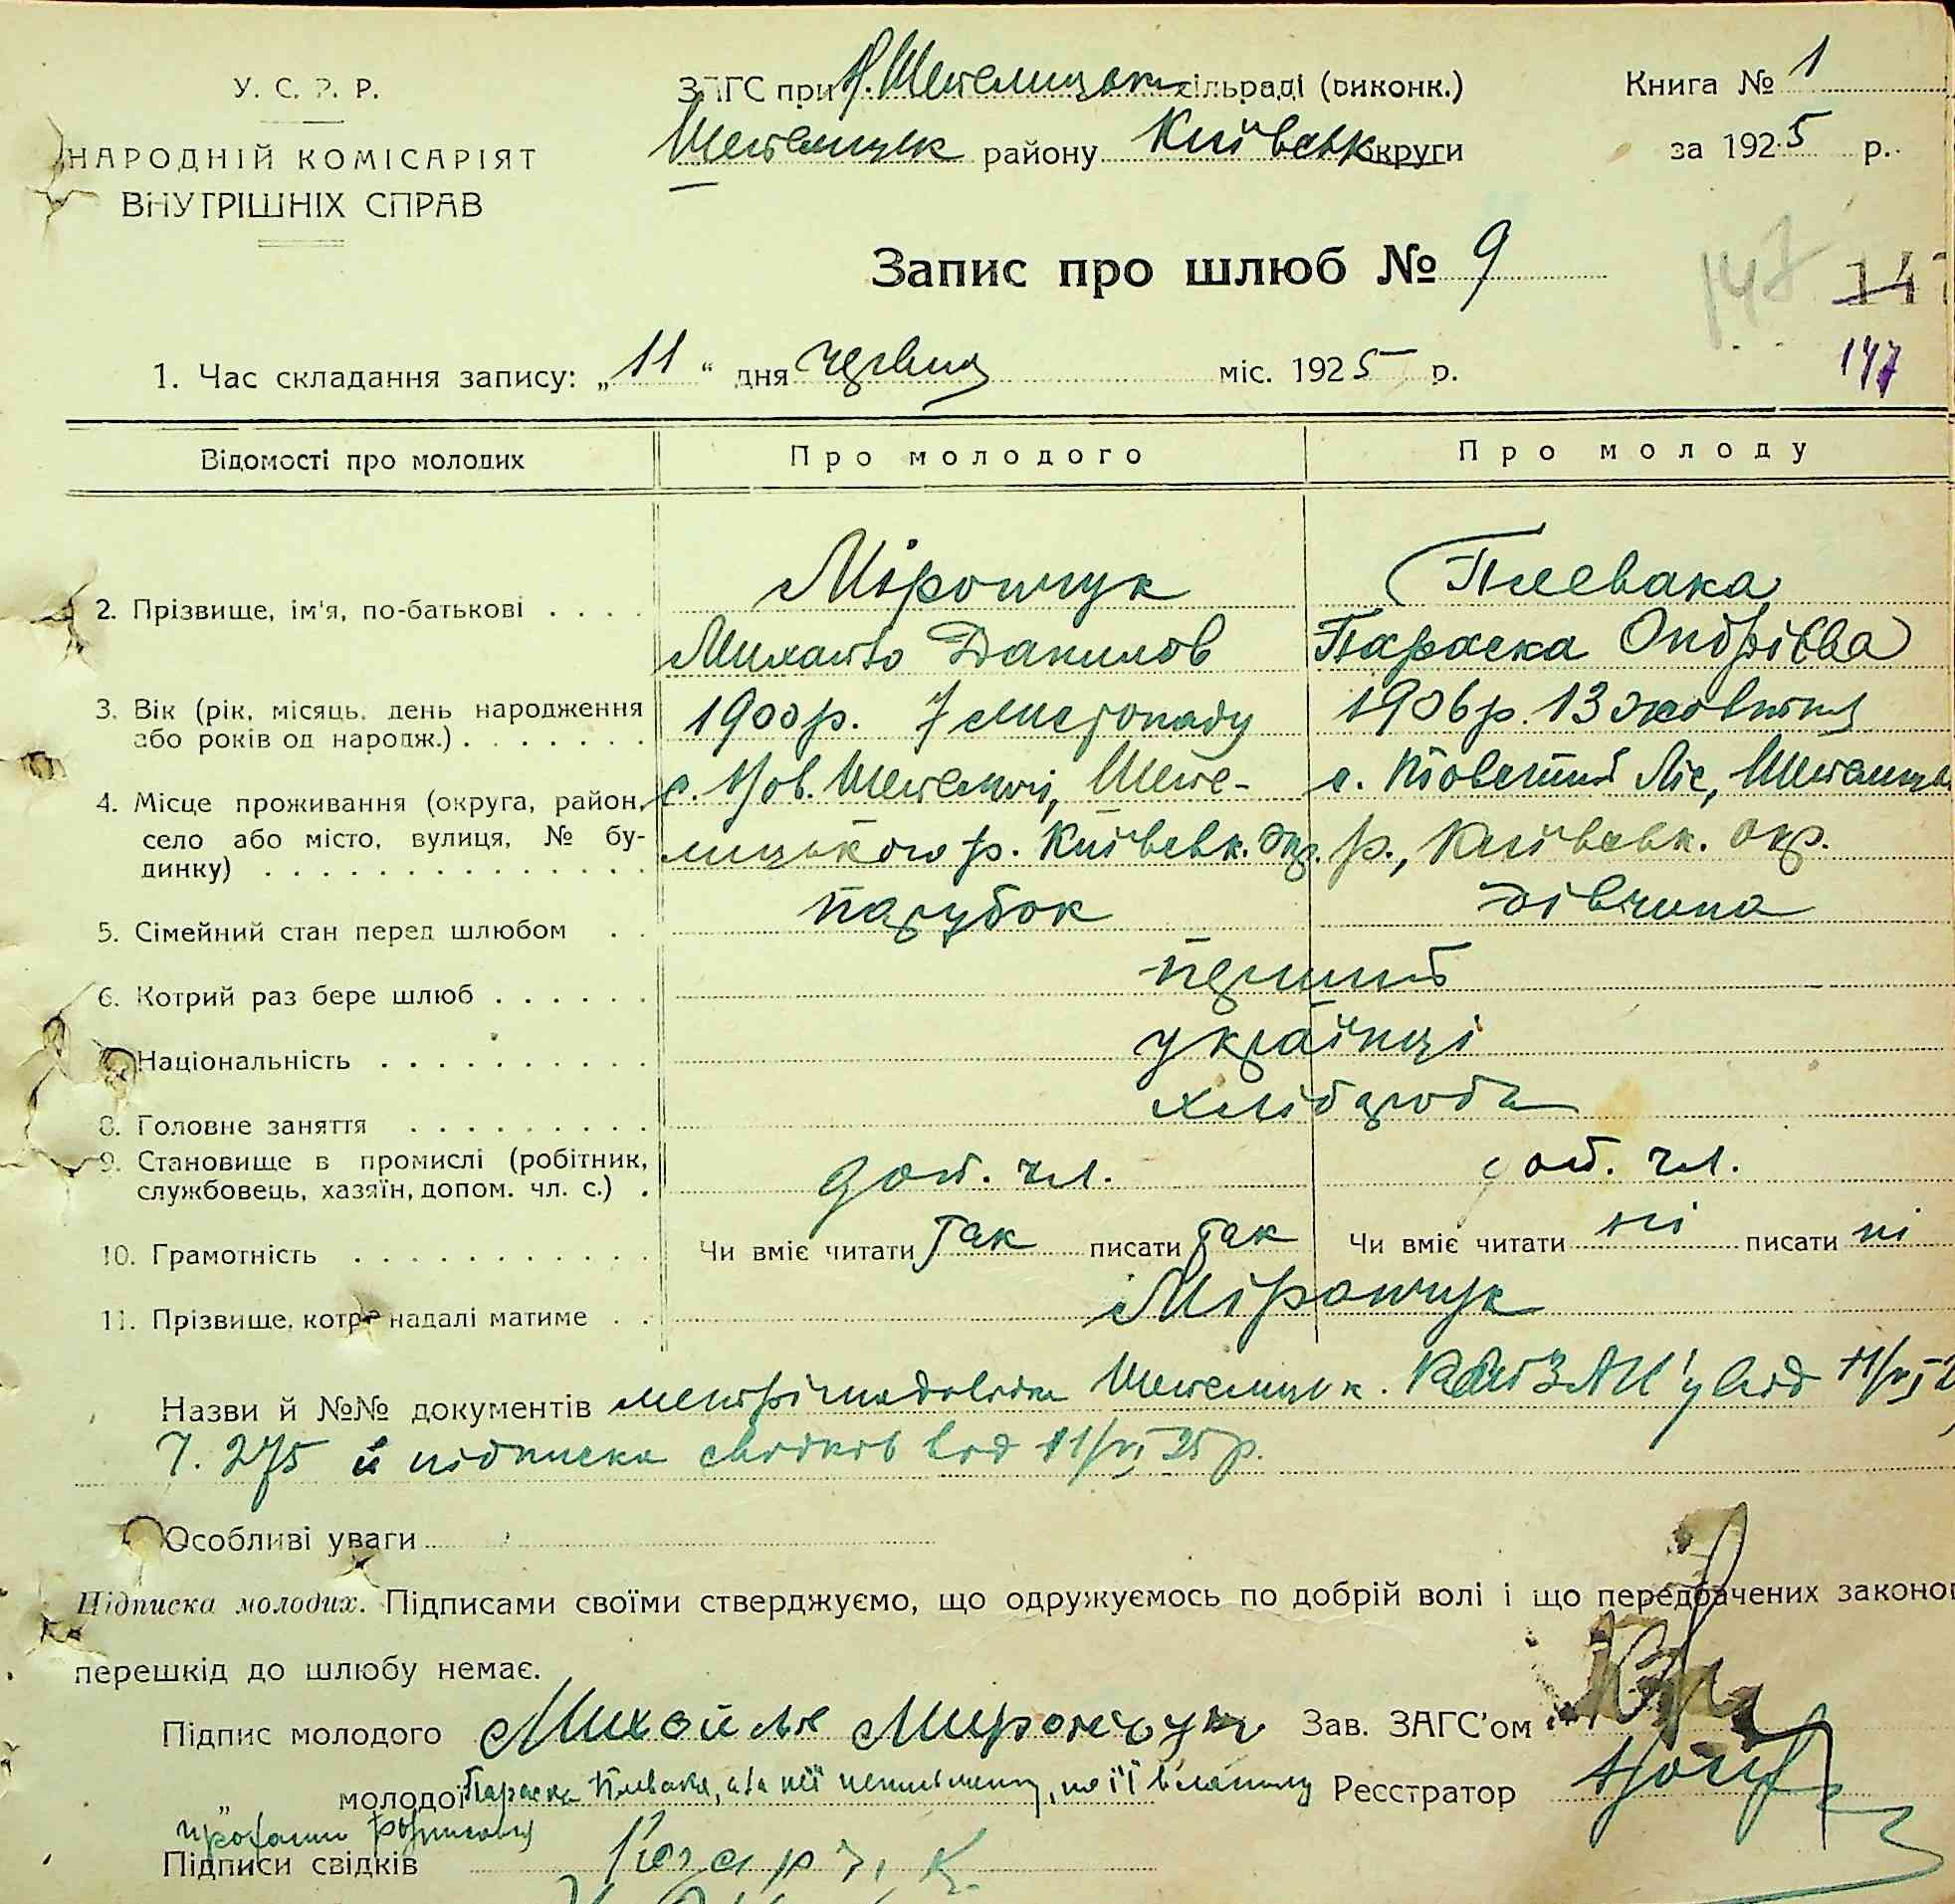 У. С. Р. Р.
НАРОДНІЙ КОМІСАРІЯТ
ВНУТРІШНІХ СПРАВ
ЗАГС при Н. Шепелицьк сільраді (виконк.)
Шепелицьк району Київськ округи
Книга № 1
за 1925 р.
Запис про шлюб № 9
147 14
147
1. Час складання запису: „11“ дня червця міс. 1925 р.
Відомості про молодих Про молодого Про молоду
2. Прізвище, ім'я, по-батькові Мірончук Плевака
Михайло Данилов Параска Ондрієва
3. Вік (рік, місяць, день народження 1900 р. 7 листопаду 1906 р. 13 жовтня
або років од народж.)
4. Місце проживання (округа, район, с. Нов. Шепеличі, Шепе- с. Товстий Ліс, Шепелицьк
село або місто, вулиця, № бу- лицького р. Київськ. окр. р., Київськ. окр.
динку)
5. Сімейний стан перед шлюбом парубок дівчина
6. Котрий раз бере шлюб перший
7. Національність українці
8. Головне заняття хлібороби
9. Становище в промислі (робітник, доп. чл. доп. чл.
службовець, хазяїн, допом. чл. с.)
10. Грамотність Чи вміє читати так писати так Чи вміє читати ні писати ні
11. Прізвище, котре надалі матиме Мірончук
Назви й №№ документів Шепелицьк. РайЗАГС'у від 11/VI 2
Ч. 275 й підписка свідків від 11/VI 25 р.
Особливі уваги
Підписка молодих. Підписами своїми стверджуємо, що одружуємось по добрій волі і що передбачених законом
перешкід до шлюбу немає.
Підпис молодого Михайло Мирончук Зав. ЗАГС'ом
„ молодої Параска Плевака, а за неї неписьменну, по її власному Реєстратор
проханню розписався
Підписи свідків